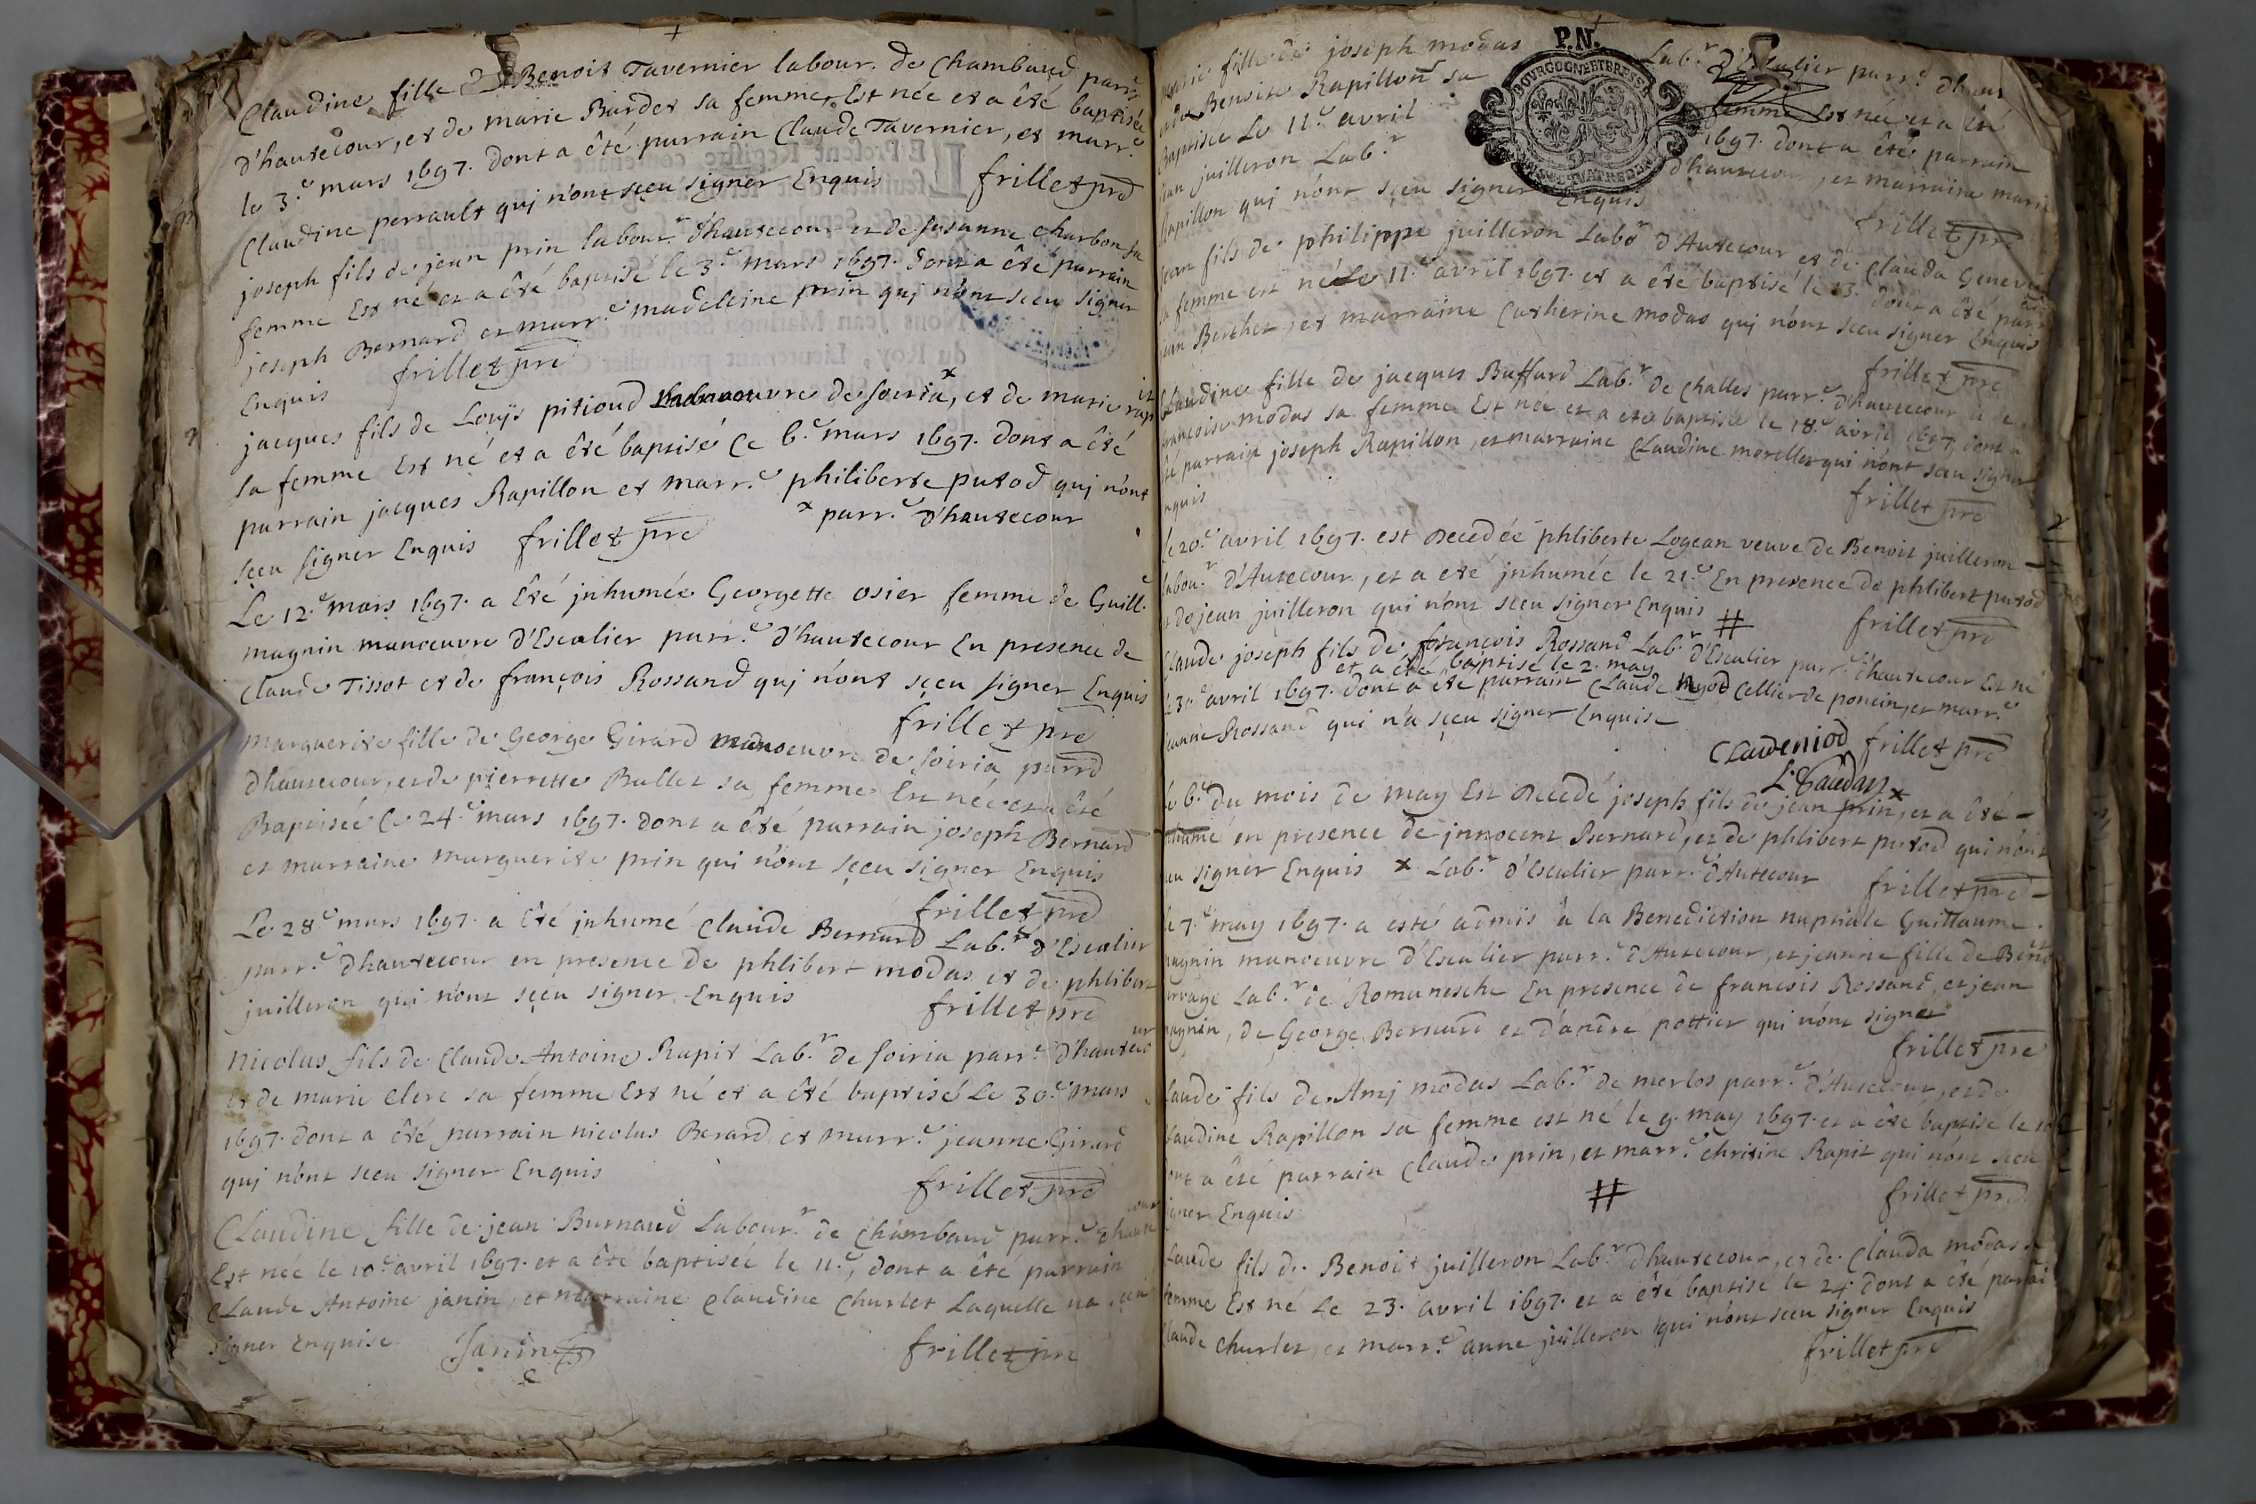 Claudine fille de Benoit Tavernier labour. de Chambaud parr.e
d'hautecour, et de marie Bardet sa femme Est née et a êté baptisée
le 3.e mars 1697. dont a êté parrain Claude Tavernier, et marr.e
Claudine perrault quj n'ont sçeu signer Enquis frillet pre
joseph fils de jean prin labour.r d'hautecour et de susanne charbon sa
femme Est né et a êté baptisé le 3.e mars 1697. dont a êté parrain
joseph Bernard et marr.e madeleine prin quj n'ont sçeu signer
Enquis frillet pre
jacques fils de Louÿs pitioud manoeuvre de soiria x, et de marie rapit
sa femme Est né et a êté baptisé Ce 6.e mars 1697. dont a êté
parrain jacques Rapillon et marr.e philiberte putod quj n'ont
sçeu signer Enquis frillet pre x parr.e d'hautecour
Le 12.e mars 1697. a Eté jnhumée Georgette osier femme de Guill.e
magnin manoeuvre d'Escalier parr.e d'hautecour En presence de
Claude Tissot et de françois Rossand quj n'ont sçeu signer Enquis
frillet pre
marguerite fille de George Girard manoeuvre de soiria parr.e
d'hautecour, et de pierrette Ballet sa femme Est née et a êté
Baptisée Ce 24.e mars 1697. dont a êté parrain joseph Bernard
et marraine marguerite prin qui n'ont sçeu signer Enquis
frillet pre
Le 28.e mars 1697. a Eté jnhumé Claude Bernard Lab.r d'Escalier
parr.e d'hautecour en presence de phlibert modas et de phlibert
juilleron qui n'ont sçeu signer Enquis frillet pre
nicolas fils de Claude Antoine Rapit Lab.r de soiria parr.e d'hautecour
Et de marie Clerc sa femme Est né et a êté baptisé Le 30.e mars
1697. dont a êté parrain nicolas Berard et marr.e jeanne Girard
quj n'ont sçeu signer Enquis frillet pre
Claudine fille de jean Burnaud Labour.r de Chambaud parr.e d'hautecour
Est née le 10.e avril 1697. et a êté baptisée le 11.e, dont a êté parrain
Claude Antoine janin, et marraine Claudine Churlet Laquelle n'a sçeu
signer Enquise Janin frillet pre
P.N.
BOURGOGNE ET BRESSE
marie fille de joseph modas Lab.r d'Escalier parr.e d'haut
et de Benoite Rapillon sa femme Est née et a êté
Baptisée Le 11.e avril 1697. dont a êté parrain
jean juilleron Lab.r d'hautecour, et marraine marie
Rapillon quj n'ont sçeu signer Enquis frillet pre
jean fils de philippe juilleron Lab.r d'Autecour et de Clauda
sa femme est né Le 11.e avril 1697. et a êté baptisé le 13. dont a êté parrain
jean Berthet, et marraine Catherine modas quj n'ont sçeu signer Enquis
frillet pre
Claudine fille de jacques Buffard Lab.r de Challes parr.e d'hautecour
françoise modas sa femme Est née et a eté baptisée le 18.e avril 1697 dont a
êté parrain joseph Rapillon, et marraine Claudine morellet qui n'ont sçeu signer
enquis frillet pre
le 20.e avril 1697. est Decedée phliberte Logean veuve de Benoit juilleron
labou.r d'Autecour, et a eté jnhumée le 21.e En presence de phlibert putod
et de jean juilleron qui n'ont sçeu signer Enquis # frillet pre
Claude joseph fils de françois Rossand Lab.r d'Escalier parr.e d'hautecour Est né
et a êté baptisé le 2. may
le 3e avril 1697. dont a êté parrain Claude Cellier de poncin, et marr.e
jeanne Rossand qui n'a sçeu signer Enquise
Claude niod frillet pre
le 6.e du mois de may Est Decedé joseph fils de jean prin, x et a êté
jnhumé en presence de jnnocent Bernard, et de phlibert putod qui n'ont
sçeu signer Enquis x Lab.r d'Escalier parr.e d'Autecour frillet pre
le 7.e may 1697. a esté admis à la Benediction nuptiale Guillaume
magnin manoeuvre d'Escalier parr.e d'Autecour, et jeanne fille de Benoit
Lab.r de Romanesche En presence de francois Rossand, et jean
magnin, de George Bernard et d'andré pottier qui n'ont signer
frillet pre
Claude fils de Amj modas Lab.r de merlos parr.e d'Autecour, et de
Claudine Rapillon sa femme est né le 9. may 1697. et a êté baptisé le 10.
dont a êté parrain Claude prin, et marr.e christine Rapit qui n'ont sçeu
signer Enquis # frillet pre
Claude fils de Benoit juilleron Lab.r d'hautecour, et de Clauda modas sa
femme Est né Le 23. avril 1697. et a êté baptisé le 24. dont a êté parrain
Claude Churlet, et marr.e anne juilleron qui n'ont sçeu signer Enquis
frillet pre